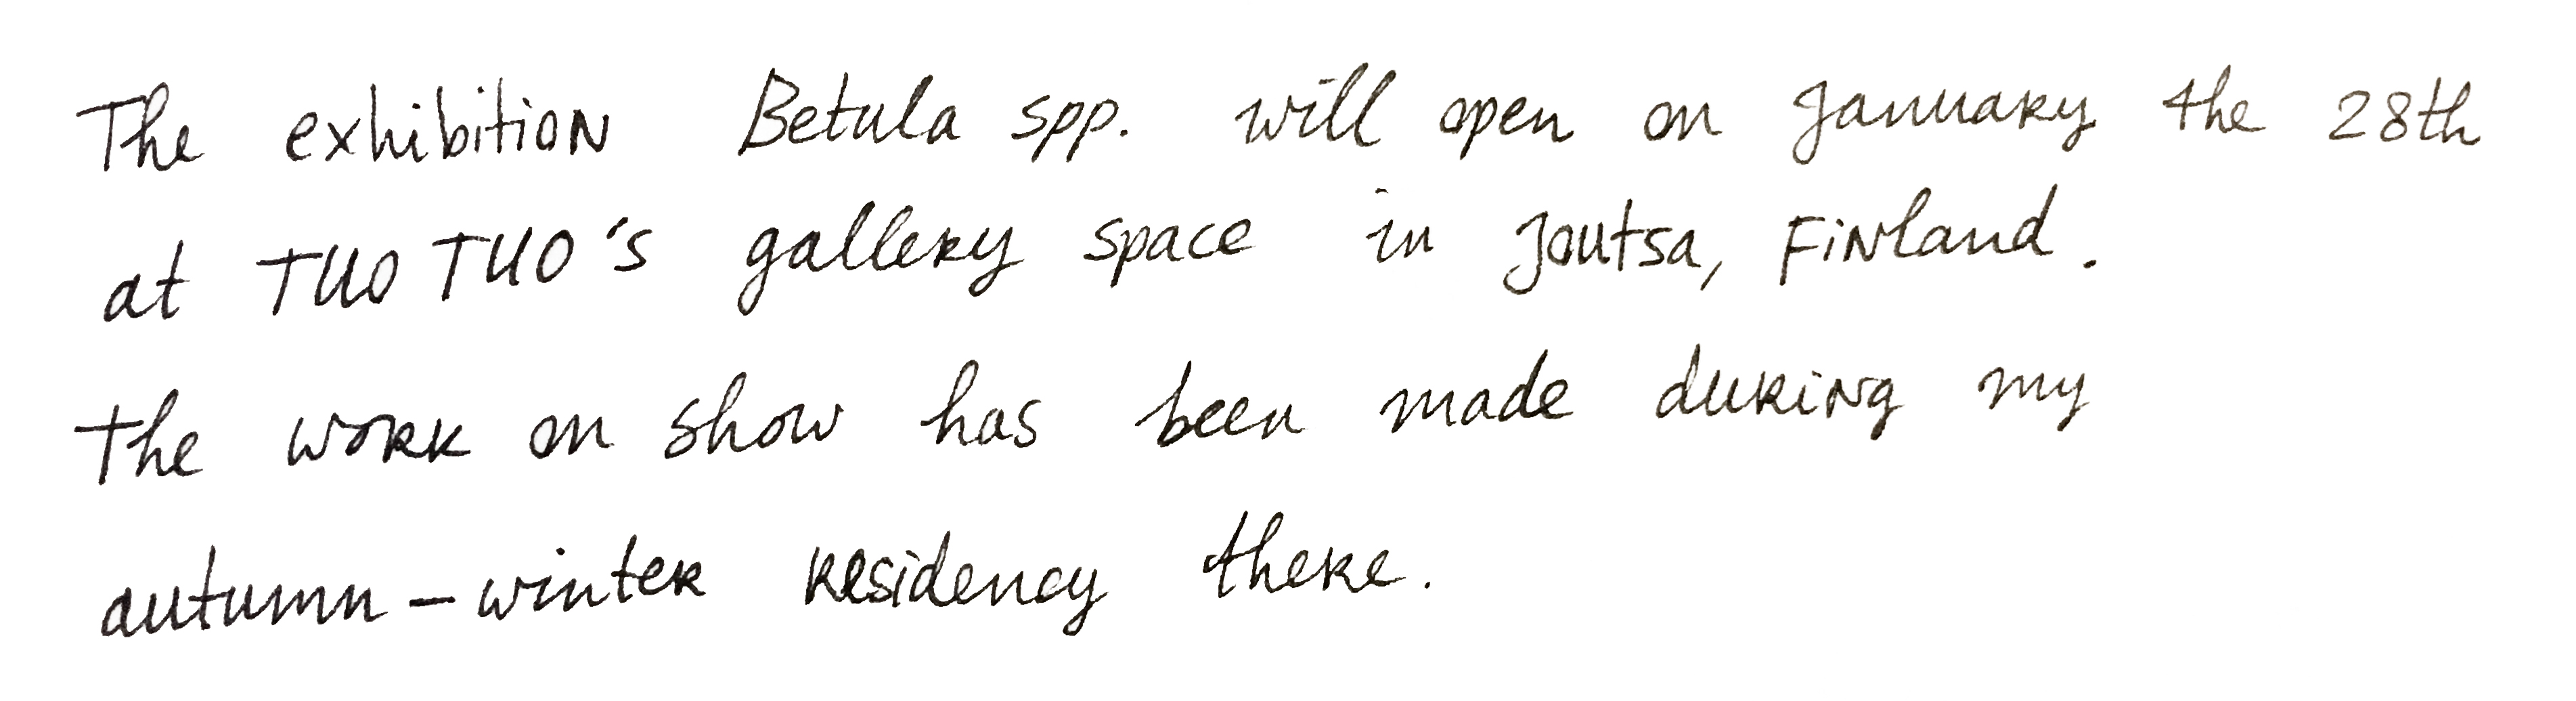 The exhibition Betula spp. will open on January the 28th
at TUO TUO's gallery space in Joutsa, Finland.
The work on show has been made during my
autumn - winter residency there.